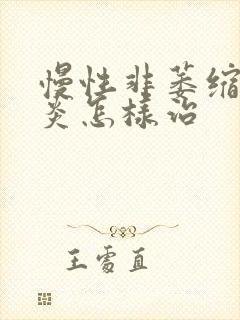 慢性非萎缩
炎怎样治
王雪直